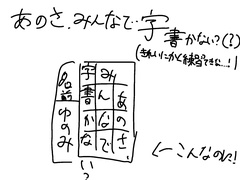 あのさ、みんなで字
書かない?(?)
(きれいにかく練習
あのさ
みんなで
字書かな
い?
名前 ゆのみ
←こんなのに!